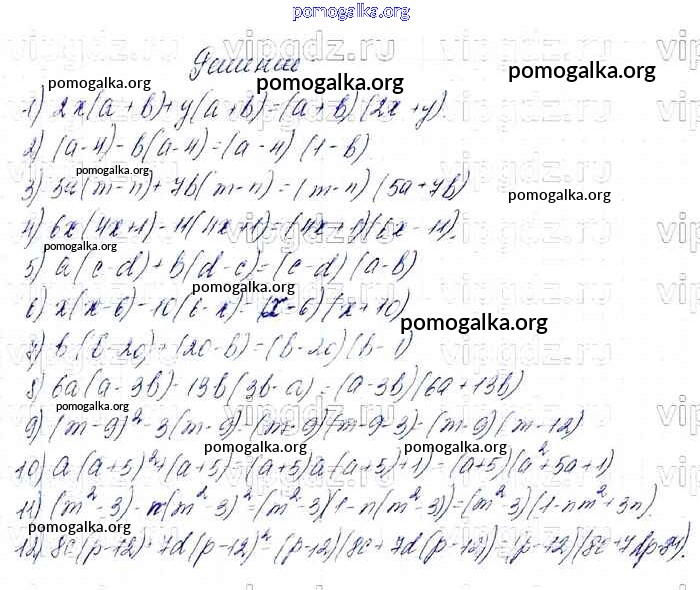 pomogalka.org
Решение
pomogalka.org
pomogalka.org
pomogalka.org
1) 2x(a+b)+y(a+b)=(a+b)(2x+y).
2) (a-4)-b(a-4)=(a-4)(1-b)
pomogalka.org
3) 5a(m-n)+7b(m-n)=(m-n)(5a+7b)
pomogalka.org
4) 6x(4x+1)-11(4x+1)=(4x+1)(6x-11).
pomogalka.org
5) a(c-d)+b(d-c)=(c-d)(a-b)
pomogalka.org
6) x(x-6)-10(6-x)=(x-6)(x+10)
pomogalka.org
7) b(b-20)+(20-b)=(b-20)(b-1)
8) 6a(a-3b)-13b(3b-a)=(a-3b)(6a+13b)
pomogalka.org
9) (m-9)²-3(m-9)=(m-9)(m-9-3)=(m-9)(m-12)
pomogalka.org
pomogalka.org
10) a(a+5)²+(a+5)=(a+5)(a(a+5)+1)=(a+5)(a²+5a+1)
11) (m²-3)-n(m²-3)²=(m²-3)(1-n(m²-3))=(m²-3)(1-nm²+3n).
pomogalka.org
12) 8c(p-12)+7d(p-12)²=(p-12)(8c+7d(p-12))=(p-12)(8c+7dp-84).